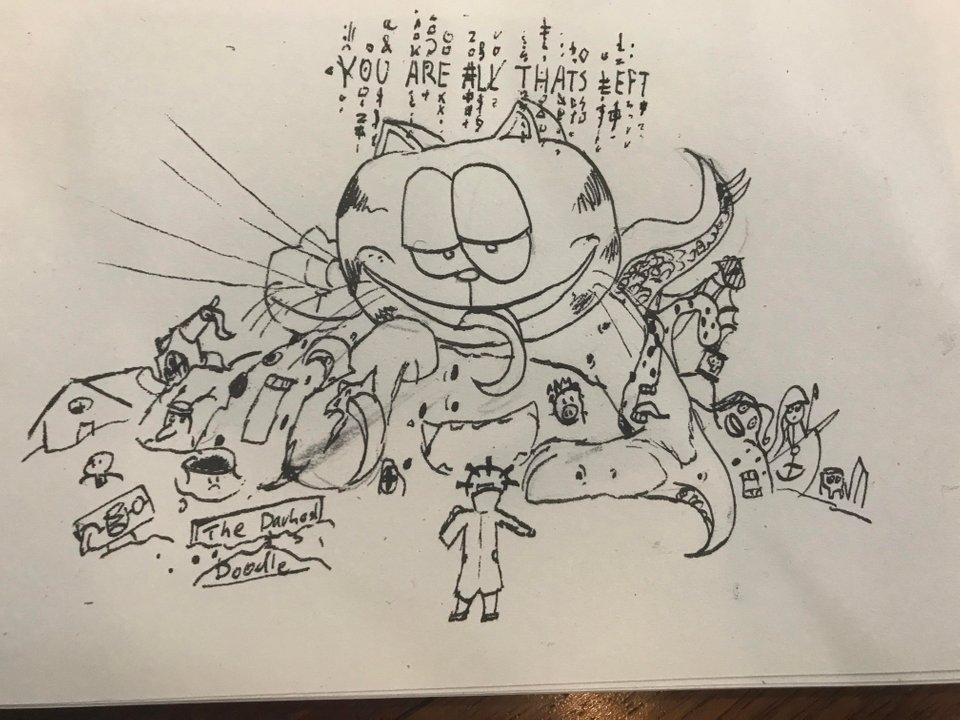 YOU ARE ALL THATS LEFT
The Darkest
Doodle